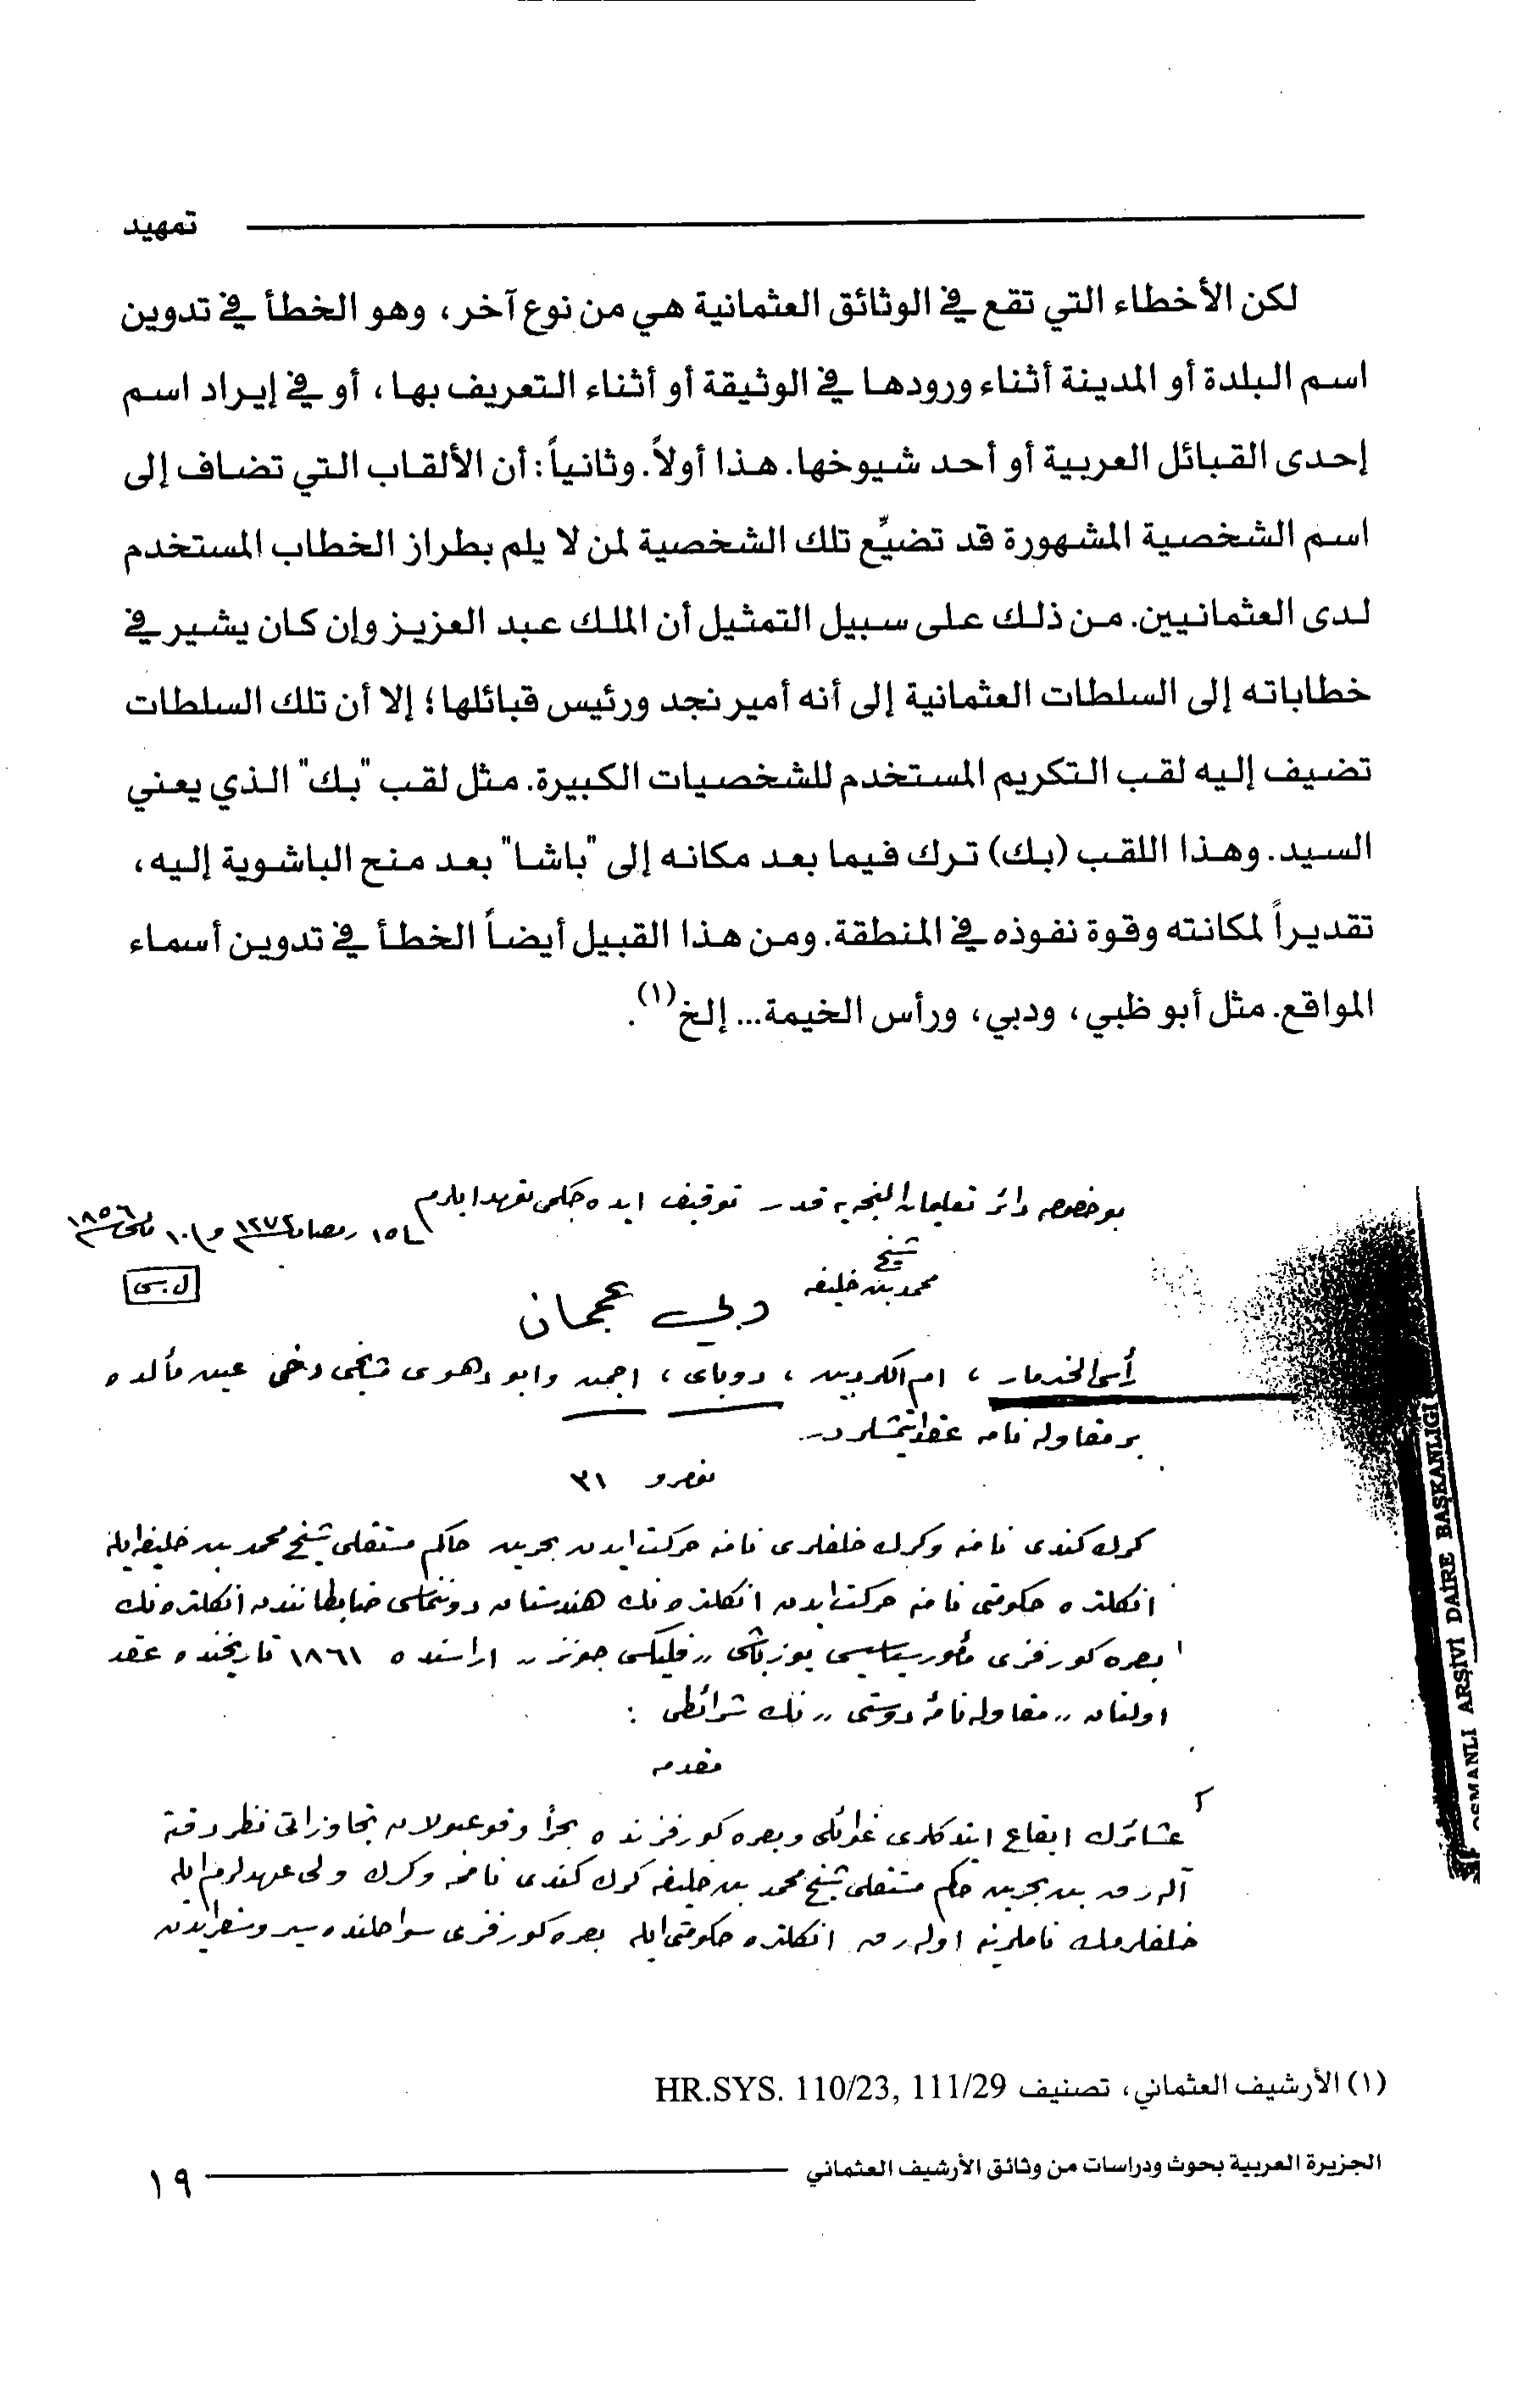 تمهيد
لكن الأخطاء التي تقع في الوثائق العثمانية هي من نوع آخر، وهو الخطأ في تدوين
اسم البلدة أو المدينة أثناء ورودها في الوثيقة أو أثناء التعريف بها، أو في إيراد اسم
إحدى القبائل العربية أو أحد شيوخها. هذا أولاً. وثانياً: أن الألقاب التي تضاف إلى
اسم الشخصية المشهورة قد تضيِّع تلك الشخصية لمن لا يلم بطراز الخطاب المستخدم
لدى العثمانيين. من ذلك على سبيل التمثيل أن الملك عبد العزيز وإن كان يشير في
خطاباته إلى السلطات العثمانية إلى أنه أمير نجد ورئيس قبائلها؛ إلا أن تلك السلطات
تضيف إليه لقب التكريم المستخدم للشخصيات الكبيرة. مثل لقب "بك" الذي يعني
السيد. وهذا اللقب (بك) ترك فيما بعد مكانه إلى "باشا" بعد منح الباشوية إليه،
تقديراً لمكانته وقوة نفوذه في المنطقة. ومن هذا القبيل أيضاً الخطأ في تدوين أسماء
المواقع. مثل أبو ظبي، ودبي، ورأس الخيمة... إلخ(١).
بو خصوصه دائر تعليمات النجريه قدر توقيف ايده جكمى تعهد ايلرم
١٥ رمضان ١٢٧٢ و ١٠ مايس ١٨٥٦
شيخ
محمد بن خليفه
دبي عجمان
رأس الخدمار، ام الكروين، دوباى، اجمن وابو دهوى شيخى دخى عين مألده
بر مقاوله نامه عقد ايتمشلردر.
نومرو ٣١
كرك كندى نامنه وكرك خلفلرى نامنه حركت ايدن بحرين حاكم مستقلى شيخ محمد بن خليفه ايله
انكلتره حكومتى نامنه حركت ايدن انكلتره نك هندستان دوننماسى ضابطانندن انكلتره نك
بصره كورفزى مأمور سياسيسى يوزباشى «فليكس جونز» اراسنده ١٨٦١ تاريخنده عقد
اولنان «مقاوله نامۀ دوستى» نك شرائطى :
مقدمه
عشائرك ايقاع ايتدكلرى غوائلى وبصره كورفزنده بحراً وقوعبولان تجاوزاتى نظر دقته
آله رق بن بحرين حاكم مستقلى شيخ محمد بن خليفه كرك كندى ناممه وكرك ولى عهدلرم ايله
خلفلرمك ناملرينه اوله رق انكلتره حكومتى ايله بصره كورفزى سواحلنده سير وسفر ايدن
OSMANLI ARŞİVİ DAİRE BAŞKANLIĞI
(١) الأرشيف العثماني، تصنيف HR.SYS. 110/23, 111/29
الجزيرة العربية بحوث ودراسات من وثائق الأرشيف العثماني ١٩